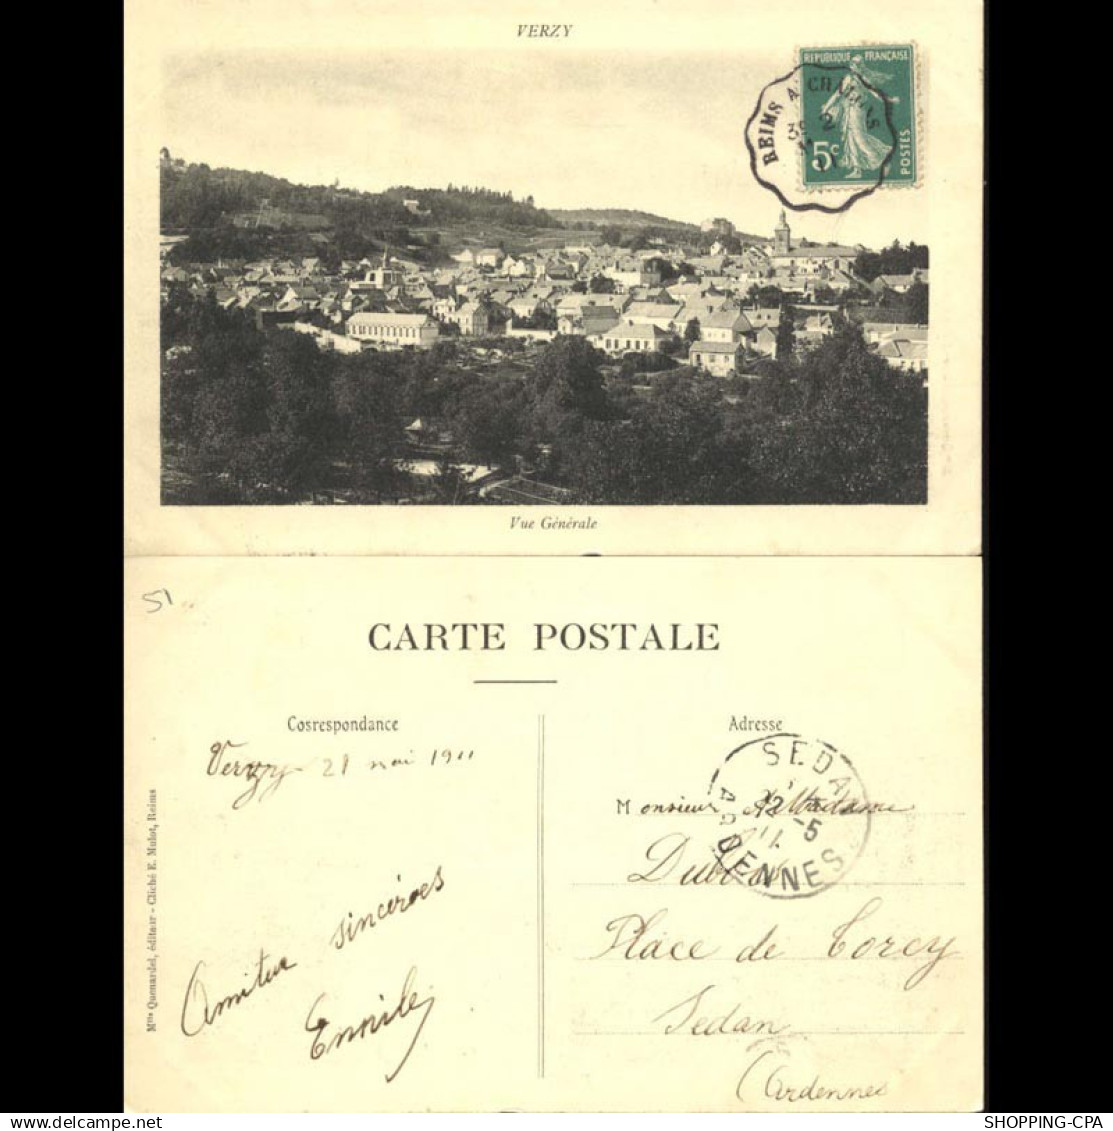 VERZY
REPUBLIQUE FRANÇAISE
5c
POSTES
REIMS A CHALONS
2
Vue Générale
51
CARTE POSTALE
Cosrespondance
Adresse
Verzy 21 mai 1911
SEDAN
22 -5
11
ARDENNES
Monsieur & Madame
Place de Torcy
Sedan
(Ardennes
Amitiés sincères
Emile
Mlle Quenardel, éditeur - Cliché E. Mulot, Reims
SHOPPING-CPA